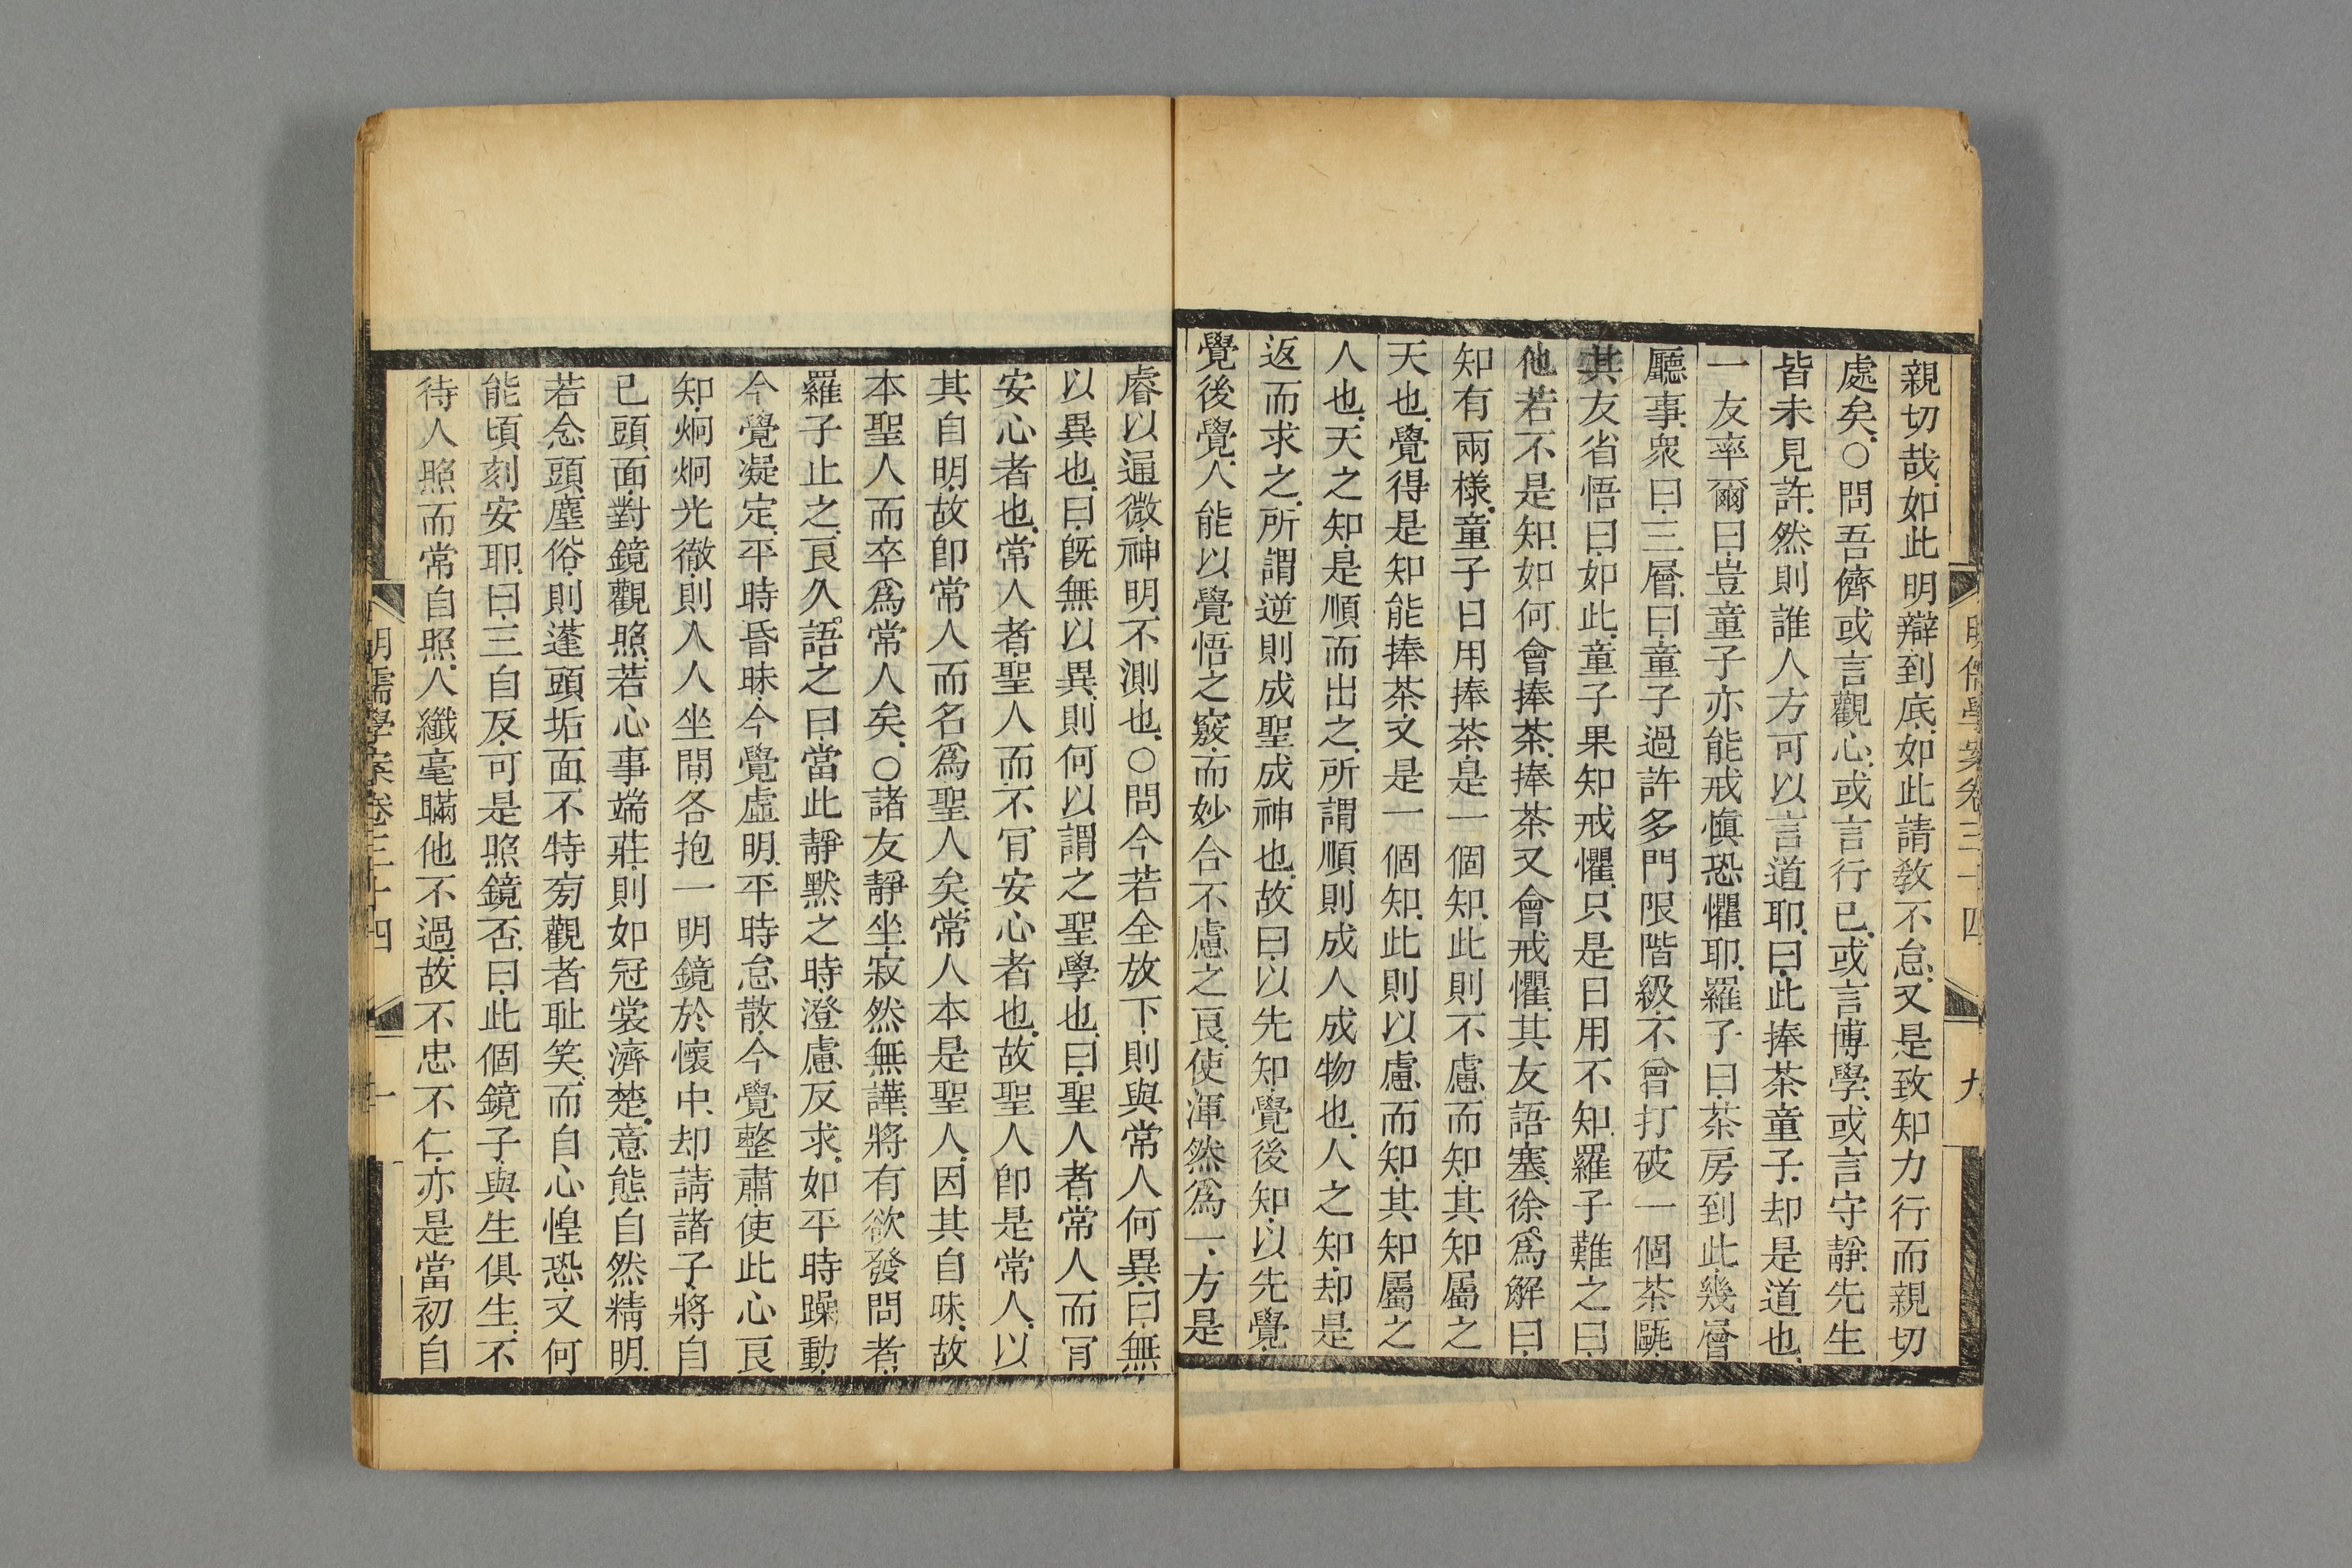 親切哉如此明辯到底如此請敎不怠又是致知力行而親切
處矣○問吾儕或言觀心或言行已或言博學或言守靜先生
皆未見許然則誰人方可以言道耶曰此捧茶童子却是道也
一友率爾曰豈童子亦能戒愼恐懼耶羅子曰茶房到此幾層
廳事衆曰三層曰童子過許多門限階級不曾打破一個茶甌
其友省悟曰如此童子果知戒懼只是日用不知羅子難之曰
他若不是知如何會捧茶捧茶又會戒懼其友語塞徐爲解曰
知有兩樣童子日用捧茶是一個知此則不慮而知其知屬之
天也覺得是知能捧茶又是一個知此則以慮而知其知屬之
人也天之知是順而出之所謂順則成人成物也人之知却是
返而求之所謂逆則成聖成神也故曰以先知覺後知以先覺
覺後覺人能以覺悟之竅而妙合不慮之良使渾然爲一方是
睿以通微神明不測也○問今若全放下則與常人何異曰無
以異也曰旣無以異則何以謂之聖學也曰聖人者常人而肎
安心者也常人者聖人而不肎安心者也故聖人卽是常人以
其自明故卽常人而名爲聖人矣常人本是聖人因其自昧故
本聖人而卒爲常人矣○諸友靜坐寂然無譁將有欲發問者
羅子止之良久語之曰當此靜默之時澄慮反求如平時躁動
今覺凝定平時昏昧今覺虛明平時怠散今覺整肅使此心良
知炯炯光徹則人人坐間各抱一明鏡於懷中却請諸子將自
已頭面對鏡觀照若心事端莊則如冠裳濟楚意態自然精明
若念頭塵俗則蓬頭垢面不特旁觀者耻笑而自心惶恐又何
能頃刻安耶曰三自反可是照鏡否曰此個鏡子與生俱生不
待人照而常自照人纖毫瞞他不過故不忠不仁亦是當初自
明儒學案卷三十四
九
明儒學案卷三十四